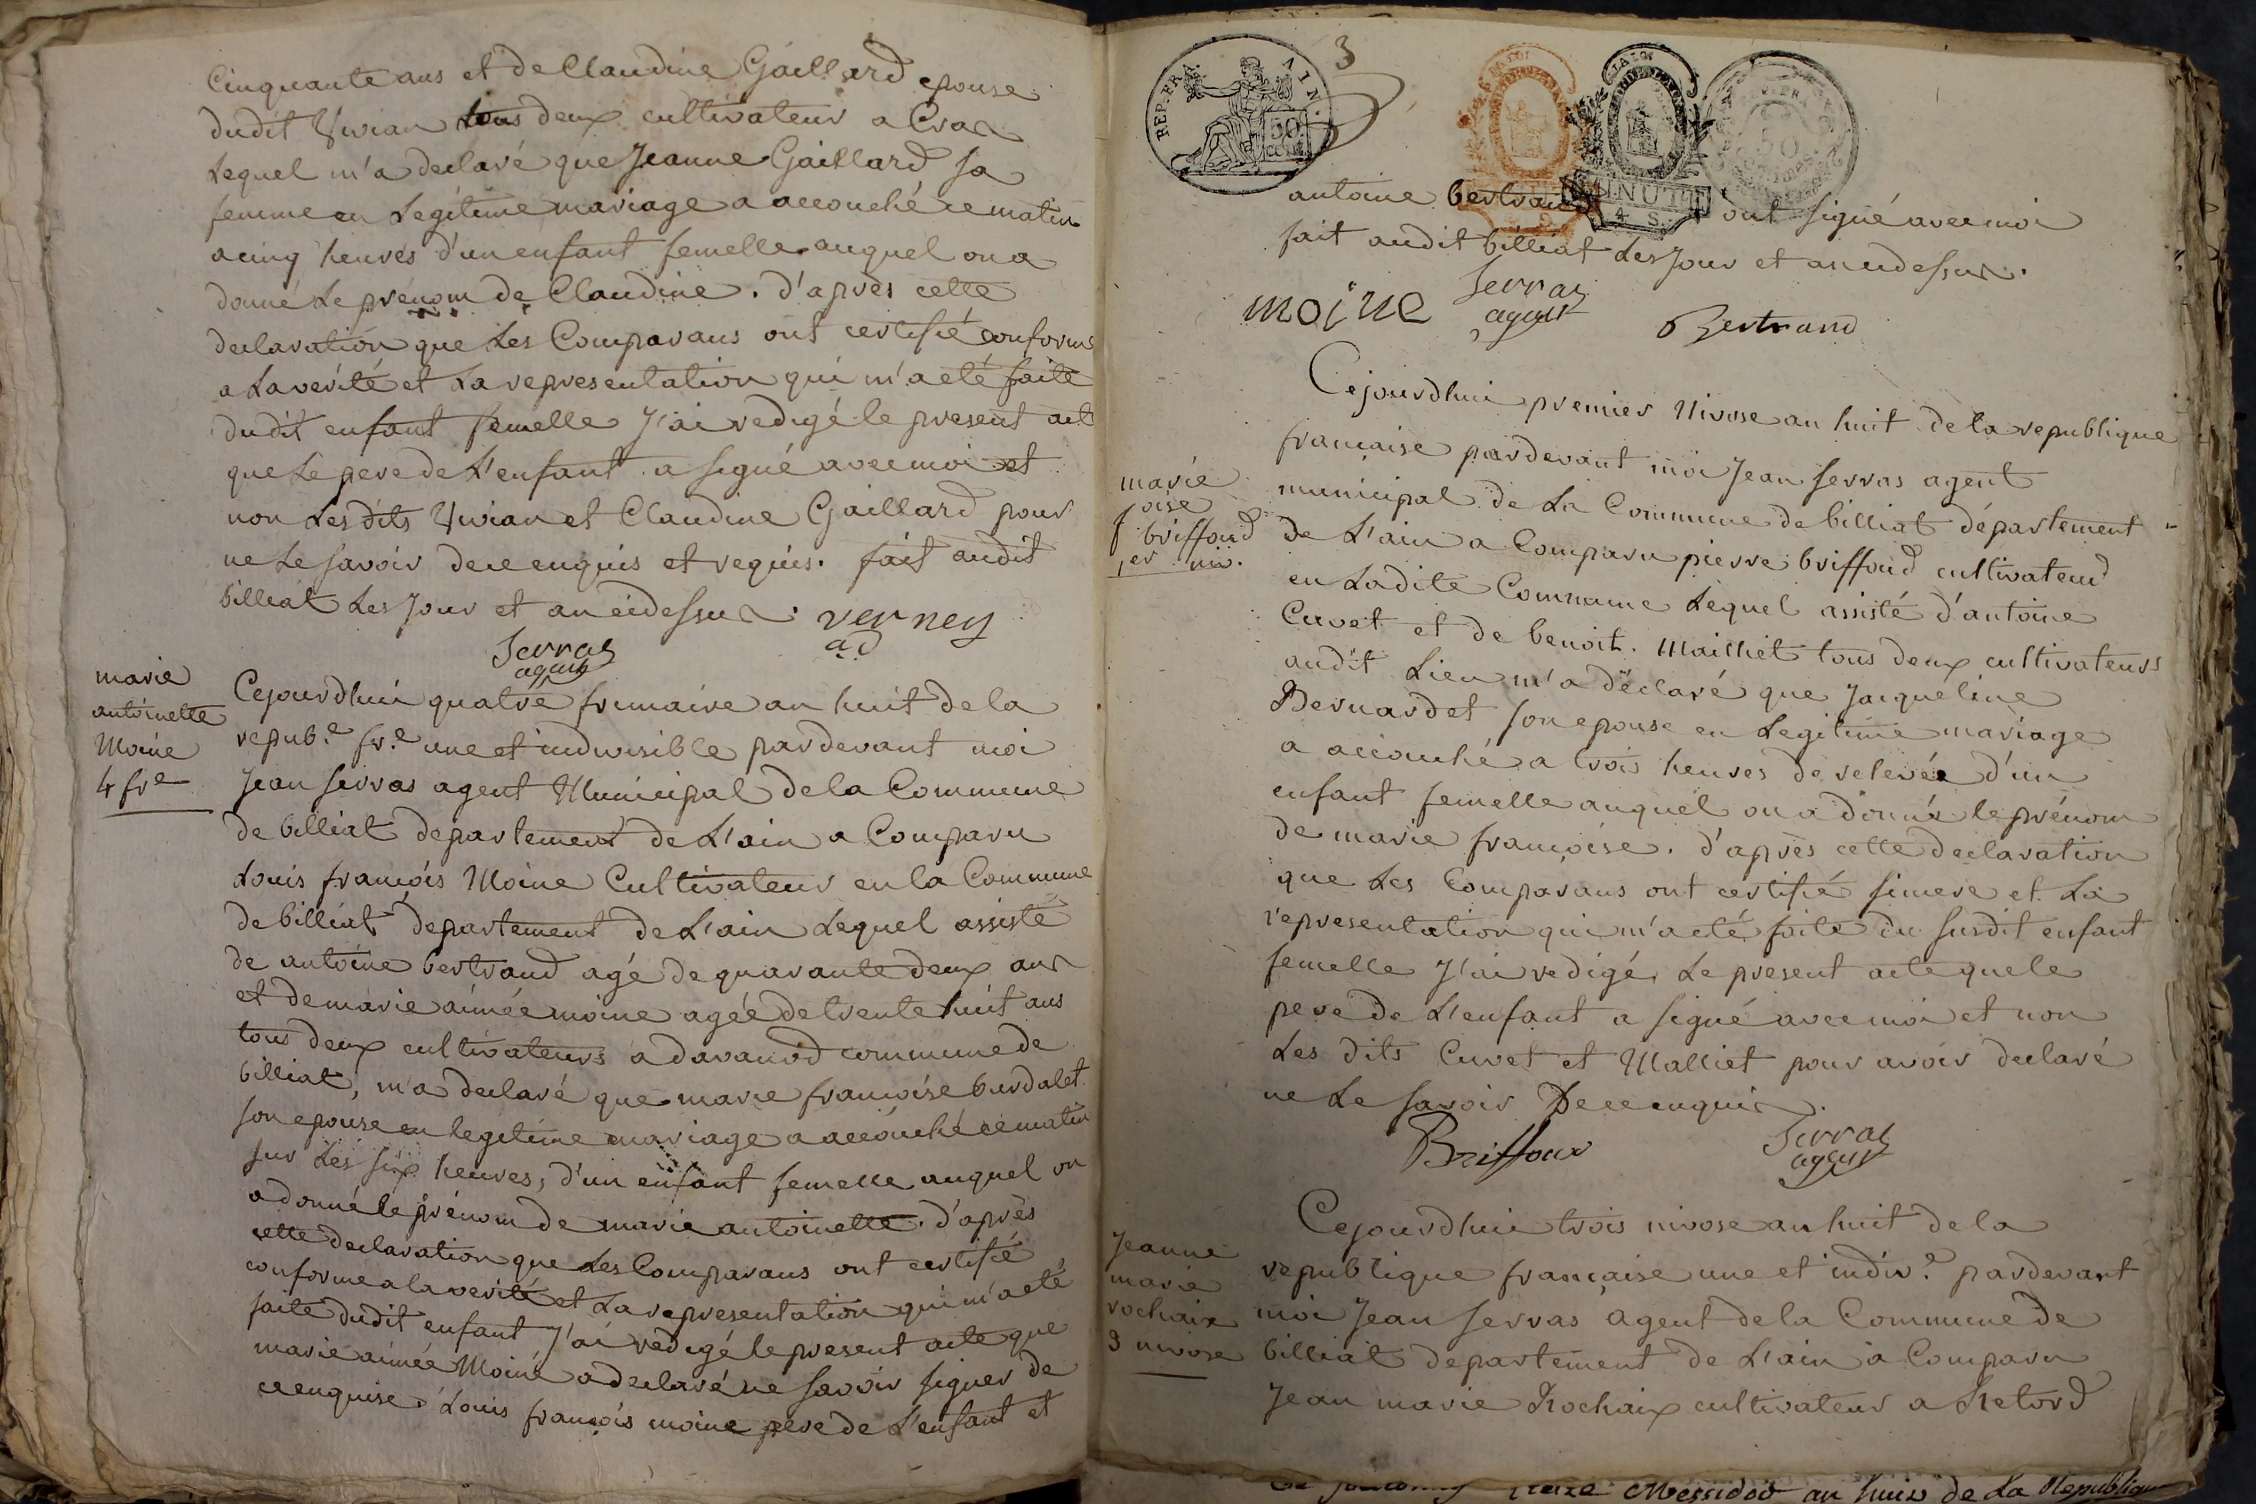 Cinquante ans et de Claudine Gaillard epouse
dudit Vivian tous deux cultivateur a Cras
Lequel m'a declaré que Jeanne Gaillard sa
femme en Legitime mariage a accouché ce matin
a cinq heures d'un enfant femelle auquel on a
donné Le prénom de Claudine. d'après cette
declaration que Les Comparans ont certifié conforme
a La verité et La representation qui m'a eté faite
dudit enfant femelle J'ai redigé le present acte
que Le pere de L'enfant a signé avec moi et
non Les dits Vivian et Claudine Gaillard pour
ne Le savoir de ce enquis et requis. fait audit
billiat Les Jour et an cidessus. verney
Serras
agent
marie
antoinette
Moine
4 fre
Cejourdhui quatre frimaire an huit de la
repub.e fr.e une et indivisible pardevant moi
Jean serras agent Municipal de la Commune
de billiat departement de L'ain a Comparu
Louis françois Moine Cultivateur en la Commune
de billiat departement de L'ain Lequel assisté
de antoine bertrand agé de quarante deux ans
et de marie aimée moine agée de trente huit ans
tous deux cultivateurs a davanod commune de
billiat, m'a declaré que marie françoise burdalet
son epouse en legitime mariage a accouché ce matin
sur Les six heures, d'un enfant femelle auquel on
a donné le prénom de marie antoinette. d'après
cette declaration que Les Comparans ont certifié
conforme a la verité et La representation qui m'a eté
faite dudit enfant J'ai redigé le present acte que
marie aimée Moine a declaré ne savoir signer de
ce enquise. Louis françois moine pere de L'enfant et
3
REP. FRA. AIN.
50
cent.
LA LOI
MINUTE
4 S.
antoine bertrand ont signé avec moi
fait audit billiat Les Jour et an cidessus.
moine Serras
agent Bertrand
marie
oise
briffoud
1er niv.
Cejourdhui premier Nivose an huit de la republique
francaise pardevant moi Jean serras agent
municipal de La Commune de billiat département
de L'ain a Comparu pierre briffoud cultivateur
en Ladite Commune Lequel assisté d'antoine
Cuvet et de benoit Malliet tous deux cultivateurs
audit Lieu m'a déclaré que Jacqueline
Bernardet son epouse en Legitime mariage
a accouché a trois heures de relevée d'un
enfant femelle auquel on a donné le prénom
de marie françoise. d'après cette declaration
que Les Comparans ont certifié sincere et La
representation qui m'a eté faite du susdit enfant
femelle J'ai redigé Le present acte que le
pere de L'enfant a signé avec moi et non
Les dits Cuvet et Malliet pour avoir declaré
ne Le savoir De ce enquis.
Briffoux Serras
agent
Jeanne
marie
rochaix
3 nivose
Cejourdhui trois nivose an huit de la
republique française une et indiv.e pardevant
moi Jean serras agent de la Commune de
billiat departement de L'ain a Comparu
Jean marie Rochaix cultivateur a Retord
treize Messidor an huit de La Republique